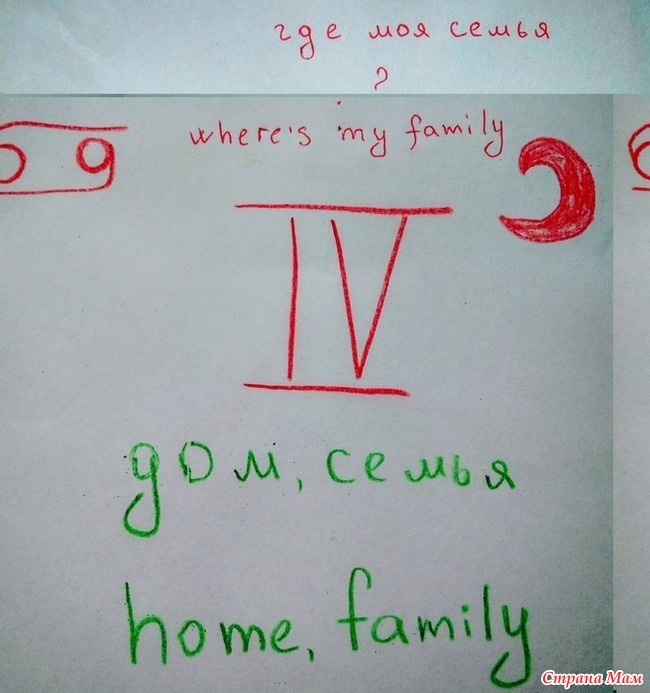 где моя семья
?
where's my family
IV
дом, семья
home, family
Страна Мам